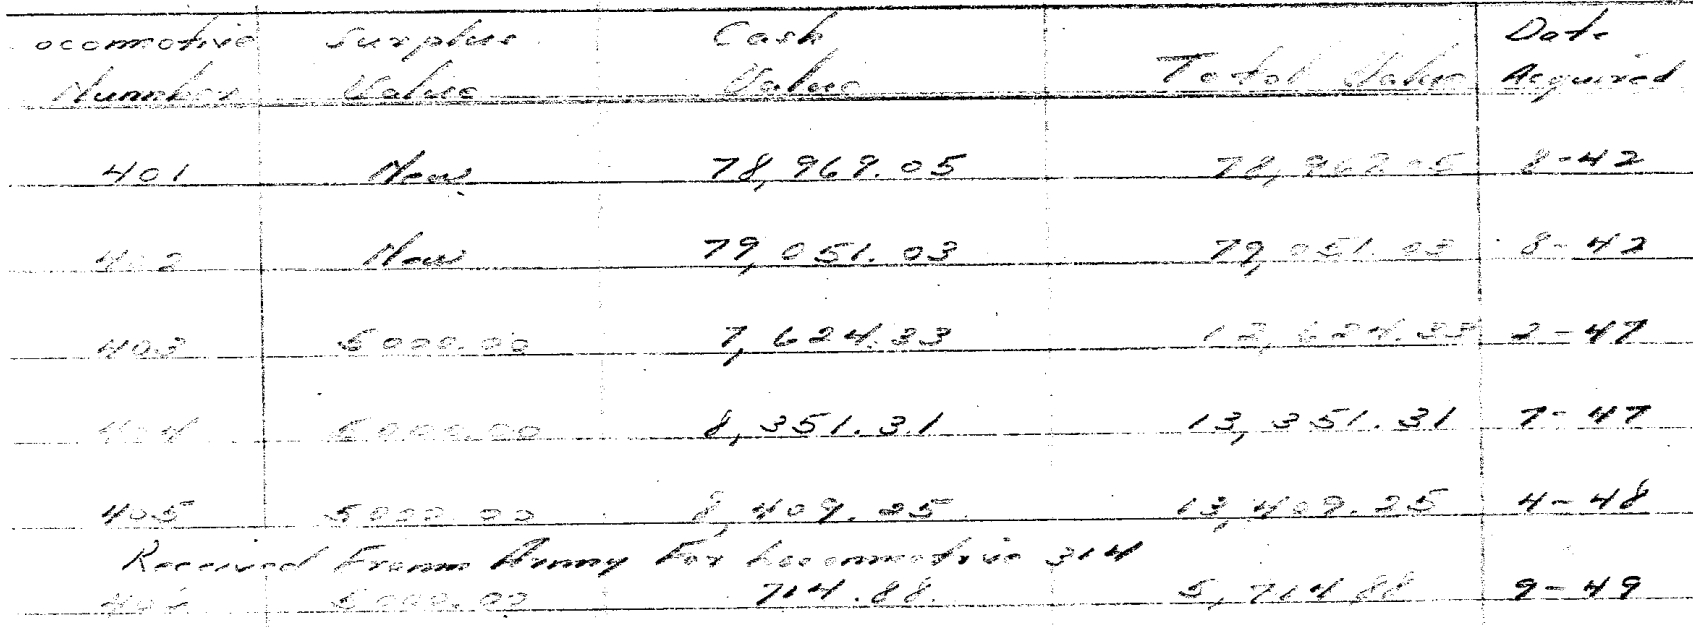 ocomotive Surplus Cash Date
Number Value Value Total Value Acquired
401 New 78,969.05 78,969.05 8-42
402 New 79,051.03 79,051.03 8-42
403 5000.00 7,624.33 12,624.33 2-47
404 5000.00 8,351.31 13,351.31 7-47
405 5000.00 8,409.25 13,409.25 4-48
Received From Army For Locomotive 314
406 5000.00 714.88 5,714.88 9-49